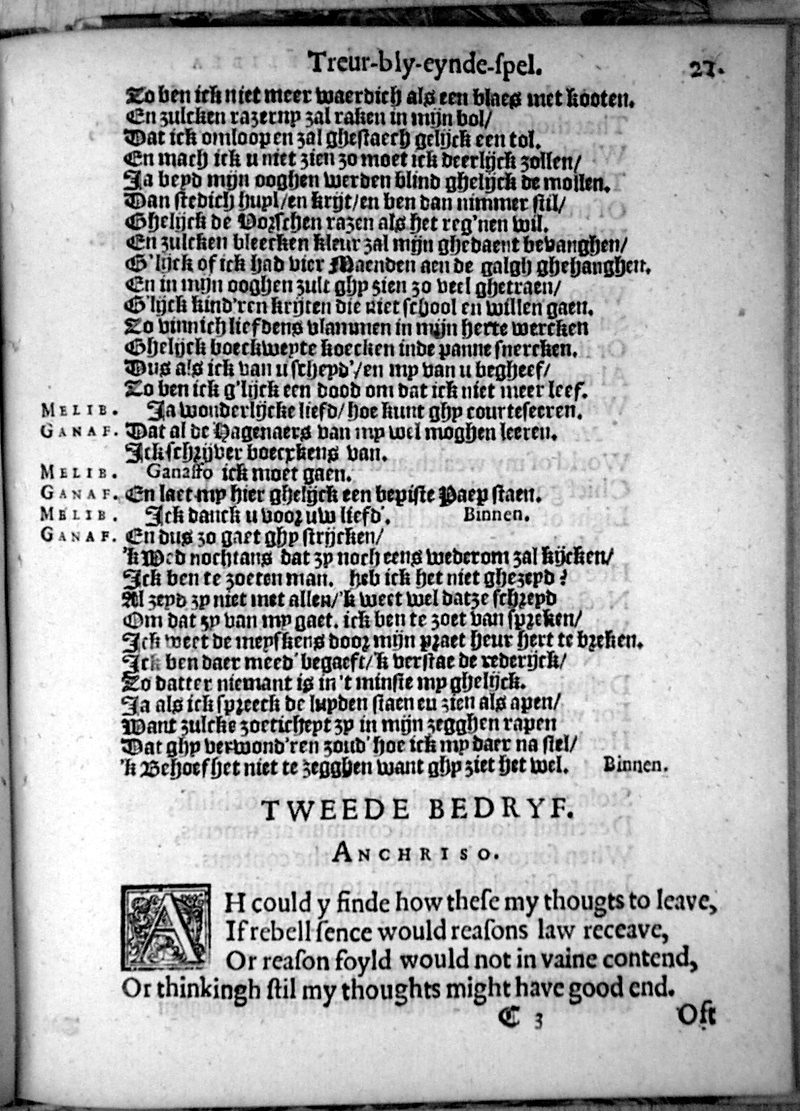 Treur-bly-eynde-ſpel. 21.
Zo ben ick niet meer waerdich als een blaes met kooten.
En zulcken razerny zal raken in mijn bol/
Dat ick omloop en zal ghestaech gelijck een tol.
En mach ick u niet zien zo moet ick deerlijck zollen/
Ja beyd mijn ooghen werden blind ghelijck de mollen.
Dan stedich huyl/en krijt/en ben dan nimmer stil/
Ghelijck de Vorschen razen als het reg'nen wil.
En zulcken bleecken kleur zal mijn ghedaent bevanghen/
G'lijck of ick had vier Maenden aen de galgh ghehanghen.
En in mijn ooghen zult ghy zien zo veel ghetraen/
G'lijck kind'ren krijten die niet school en willen gaen.
Zo vinnich liefdens vlammen in mijn herte wercken
Ghelijck boeckweyte koecken inde panne snercken.
Dus als ick van u scheyd'/en my van u begheef/
Zo ben ick g'lijck een dood om dat ick niet meer leef.
MELIB. Ja wonderlijcke liefd/ hoe kunt ghy courteseeren.
GANAF. Dat al de Hagenaers van my wel moghen leeren.
Ick schrijver boecxkens van.
MELIB. Ganasso ick moet gaen.
GANAF. En laet my hier ghelijck een bepiste Paep staen.
MELIB. Ick danck u voor uw liefd'. Binnen.
GANAF. En dus zo gaet ghy strijcken/
'k Wed nochtans dat zy noch eens wederom zal kijcken/
Ick ben te zoeten man. heb ick het niet ghezeyd?
Al zeyd zy niet met allen/'k weet wel datze schreyd
Om dat zy van my gaet. ick ben te zoet van spreken/
Ick weet de meyskens door mijn praet heur hert te breken.
Ick ben daer meed' begaeft/'k verstae de rederijck/
Zo datter niemant is in 't minste my ghelijck.
Ja als ick spreeck de luyden staen en zien als apen/
Want zulcke zoeticheyt zy in mijn zegghen rapen
Dat ghy verwond'ren zoud' hoe ick my daer na stel/
'k Behoef het niet te zegghen want ghy ziet het wel. Binnen.
TWEEDE BEDRYF.
ANCHRISO.
AH could y finde how theſe my thougts to leave,
If rebell ſence would reaſons law receave,
Or reaſon foyld would not in vaine contend,
Or thinkingh ſtil my thoughts might have good end.
C 3 Oft